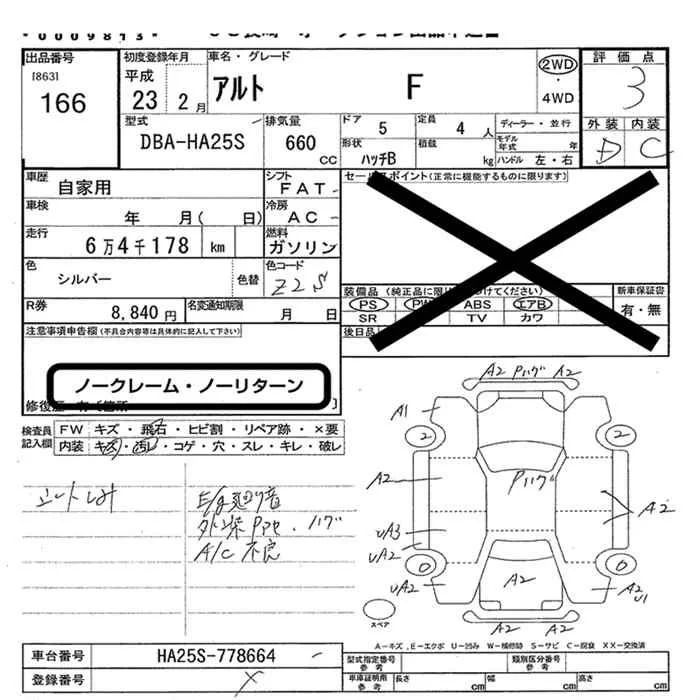 0009813
出品番号
[863]
166
初度登録年月
平成
23 2月
車名・グレード
アルト F
2WD
・
4WD
評価点
3
外装 内装
D C
型式
DBA-HA25S
排気量
660
CC
ドア
5
定員
4人
ディーラー・並行
形状
ハッチB
積載
kg
モデル年式 年
ハンドル 左・右
車歴
自家用
シフト
FAT
セールスポイント(正常に機能するものに限ります)
車検
年 月( 日)
冷房
AC
走行
6万4千178 km
燃料
ガソリン
色
シルバー
色替
色コード
Z2S
装備品(純正品に限り
けてください)
新車保証書
PS PW ABS エアB
有・無
SR TV カワ
R券
8,840円
名変通知期限
月 日
後日品
注意事項申告欄(不具合内容等は具体的に記入して下さい)
ノークレーム・ノーリターン
検査員
記入欄
FW キズ・飛石・ヒビ割・リペア跡・×要
内装 キズ・汚レ・コゲ・穴・スレ・キレ・破レ
E/g廻り音
A/C不良
A2 Pハゲ A2
A1
2 2
A2
Pハゲ
A2
UA3
UA2
0 0
UA2
A2
A2
U1
A2 A2
スペア
A-キズ,E-エクボ U-凹み W-補修跡 S-サビ C-腐食 XX-交換済
車台番号
HA25S-778664
登録番号
型式指定番号
参考
類別区分番号
参考
車庫証明用
参考
長さ cm 幅 cm 高さ cm